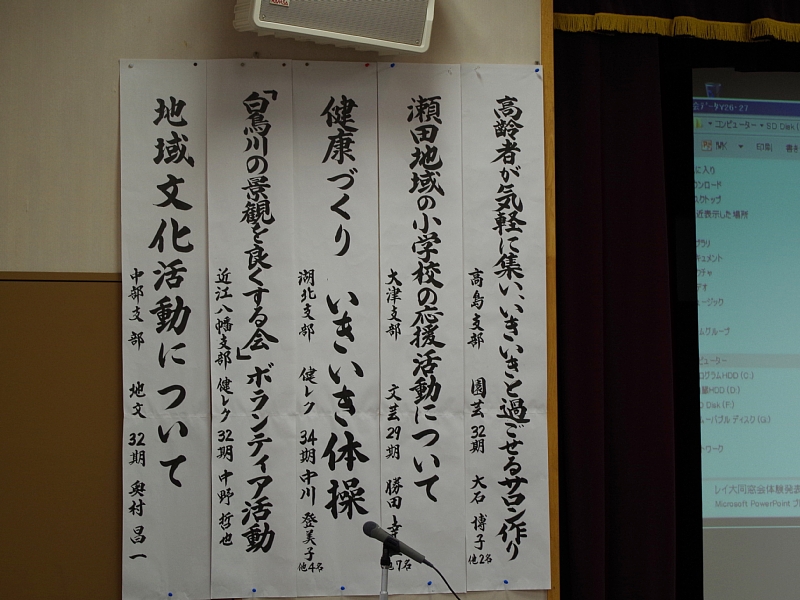 高齢者が気軽に集い、いきいきと過ごせるサロン作り
高島支部 園芸32期 大石博子
他2名
瀬田地域の小学校の応援活動について
大津支部 文芸29期 勝田
他9名
健康づくり いきいき体操
湖北支部 健レク 34期 中川登美子
他4名
「白鳥川の景観を良くする会」ボランティア活動
近江八幡支部 健レク 32期 中野哲也
地域文化活動について
中部支部 地文 32期 奥村昌一
コンピューター SD Disk (
印刷 書き
に入り
ンロード
スクトップ
近表示した場所
ブラリ
キュメント
クチャ
デオ
ュージック
ムグループ
ピューター
ログラムHDD (C:)
HDD (D:)
D Disk (F:)
ムーバブル ディスク (G:)
トワーク
レイ大同窓会体験発表
Microsoft PowerPoint プ